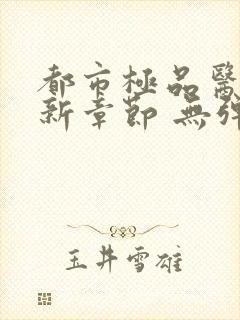 都市極品醫
新章節 無彈
玉井雪雄